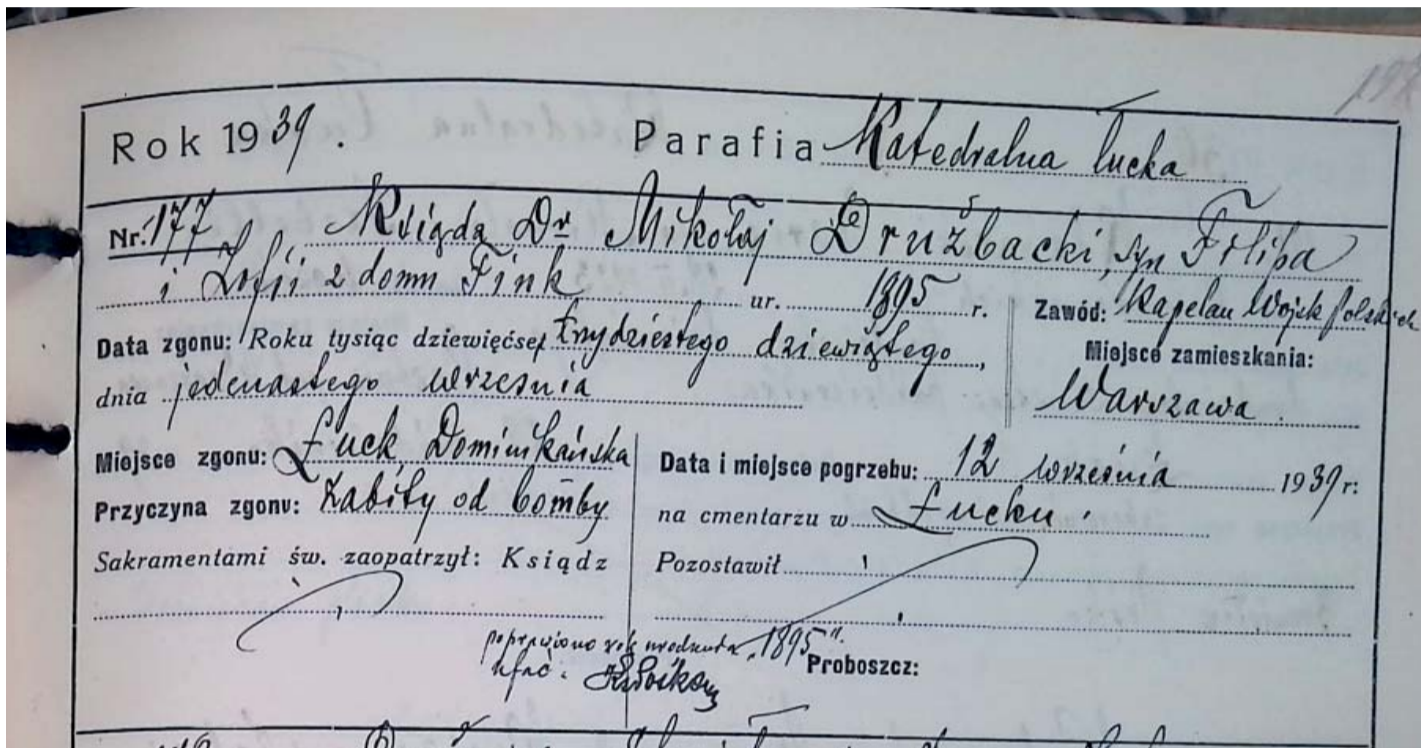 198
Rok 1939. Parafia Katedralna Łucka
Nr. 177 Ksiądz Dr Mikołaj Drużbacki, syn Filipa
i Zofji z domu Fink ur. 1895 r. Zawód: Kapelan Wojsk Polskich
Data zgonu: Roku tysiąc dziewięćset trzydziestego dziewiątego,
dnia jedenastego września
Miejsce zamieszkania:
Warszawa.
Miejsce zgonu: Łuck, Dominikańska
Przyczyna zgonu: Zabity od bomby
Sakramentami św. zaopatrzył: Ksiądz
Data i miejsce pogrzebu: 12 września 1939 r:
na cmentarzu w Łucku.
Pozostawił
poprawiono rok urodzenia "1895"
Proboszcz: